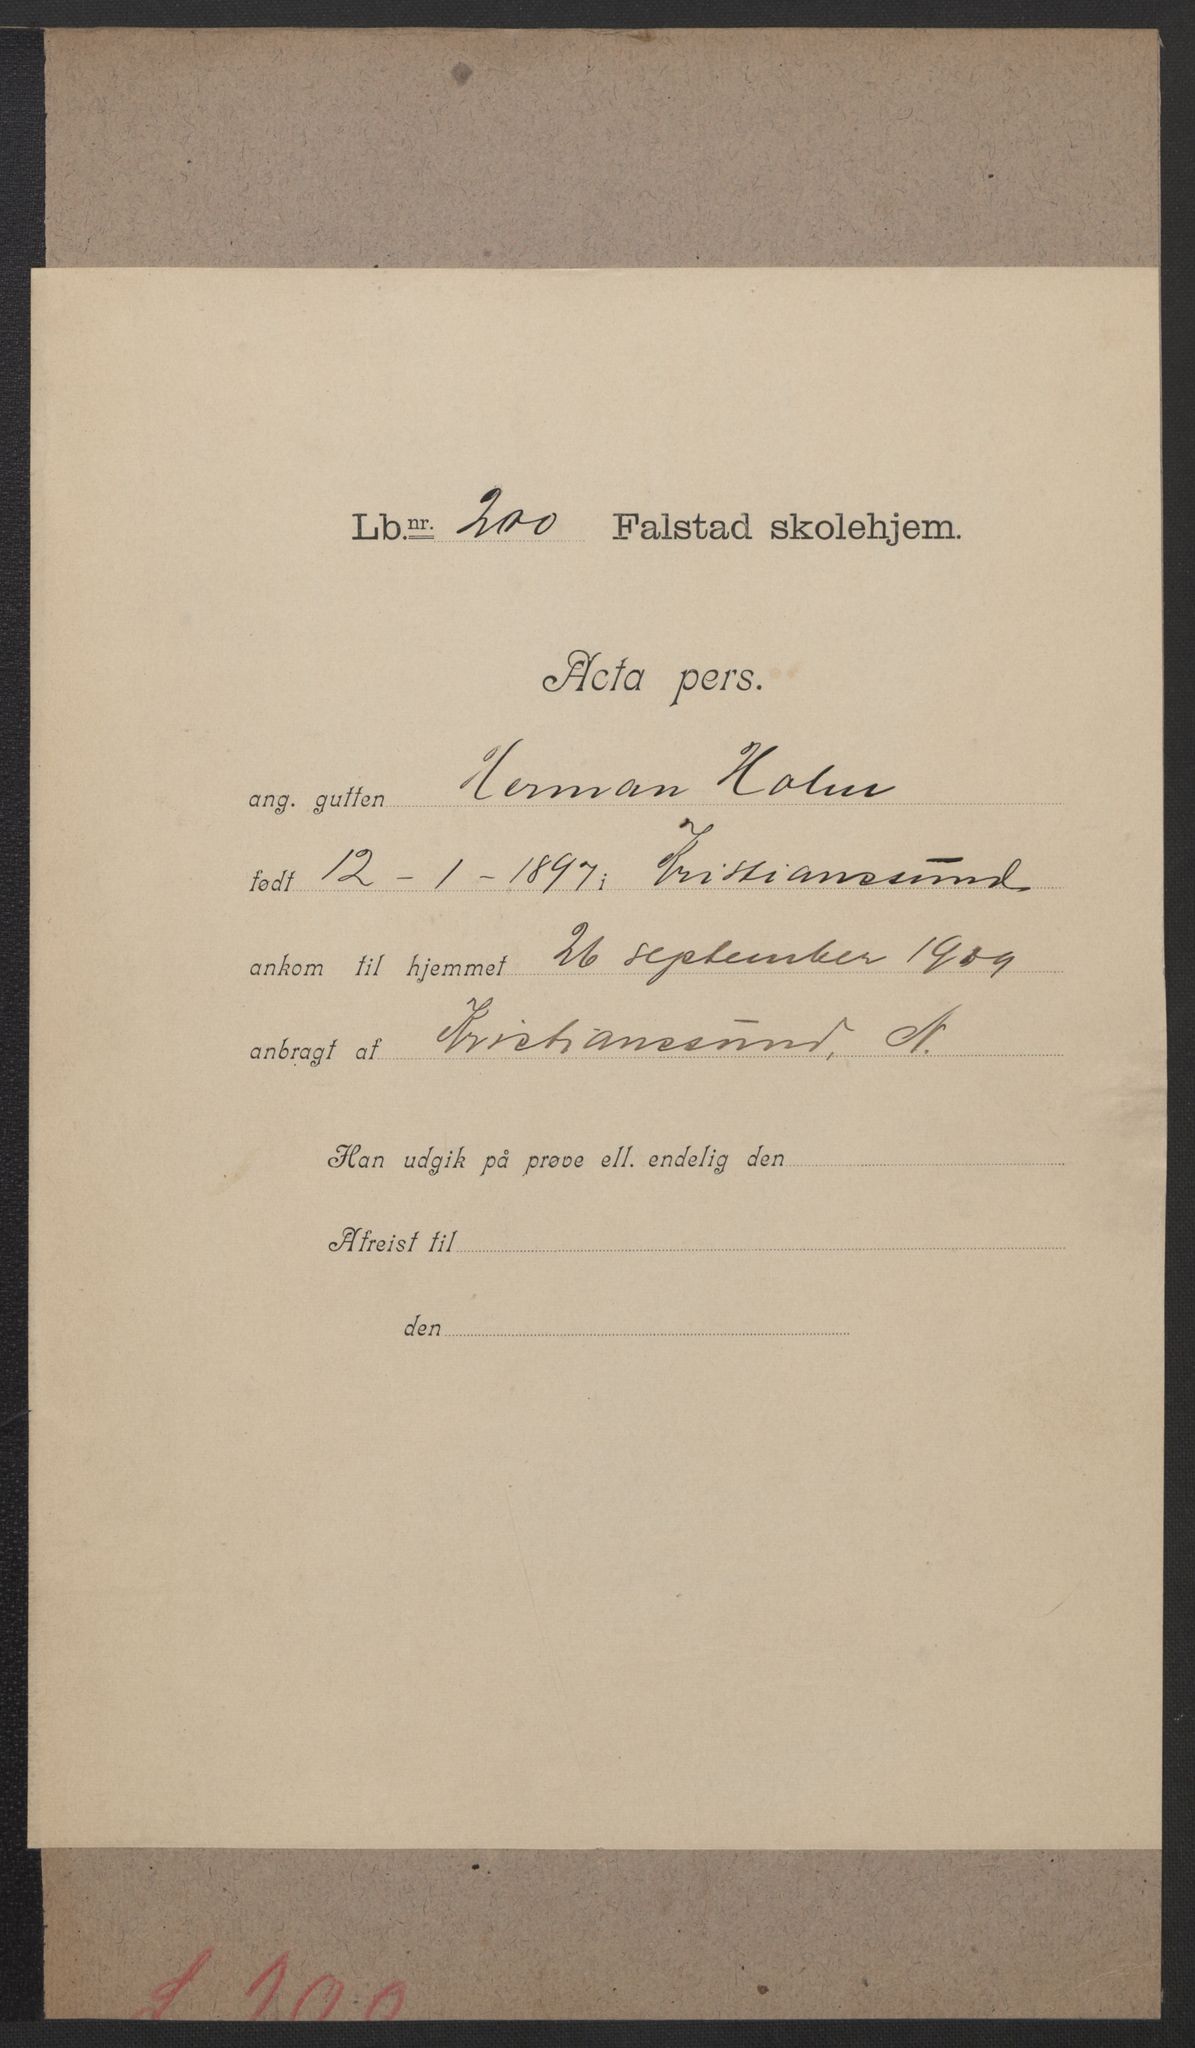 Lb.nr. 200 Falstad skolehjem.
Acta pers.
ang. gutten Herman Holm
født 12 - 1 - 1897 i Kristianssund
ankom til hjemmet 26 september 1909
anbragt af Kristianssund, N.
Han udgik på prøve ell. endelig den
Afreist til
den
200